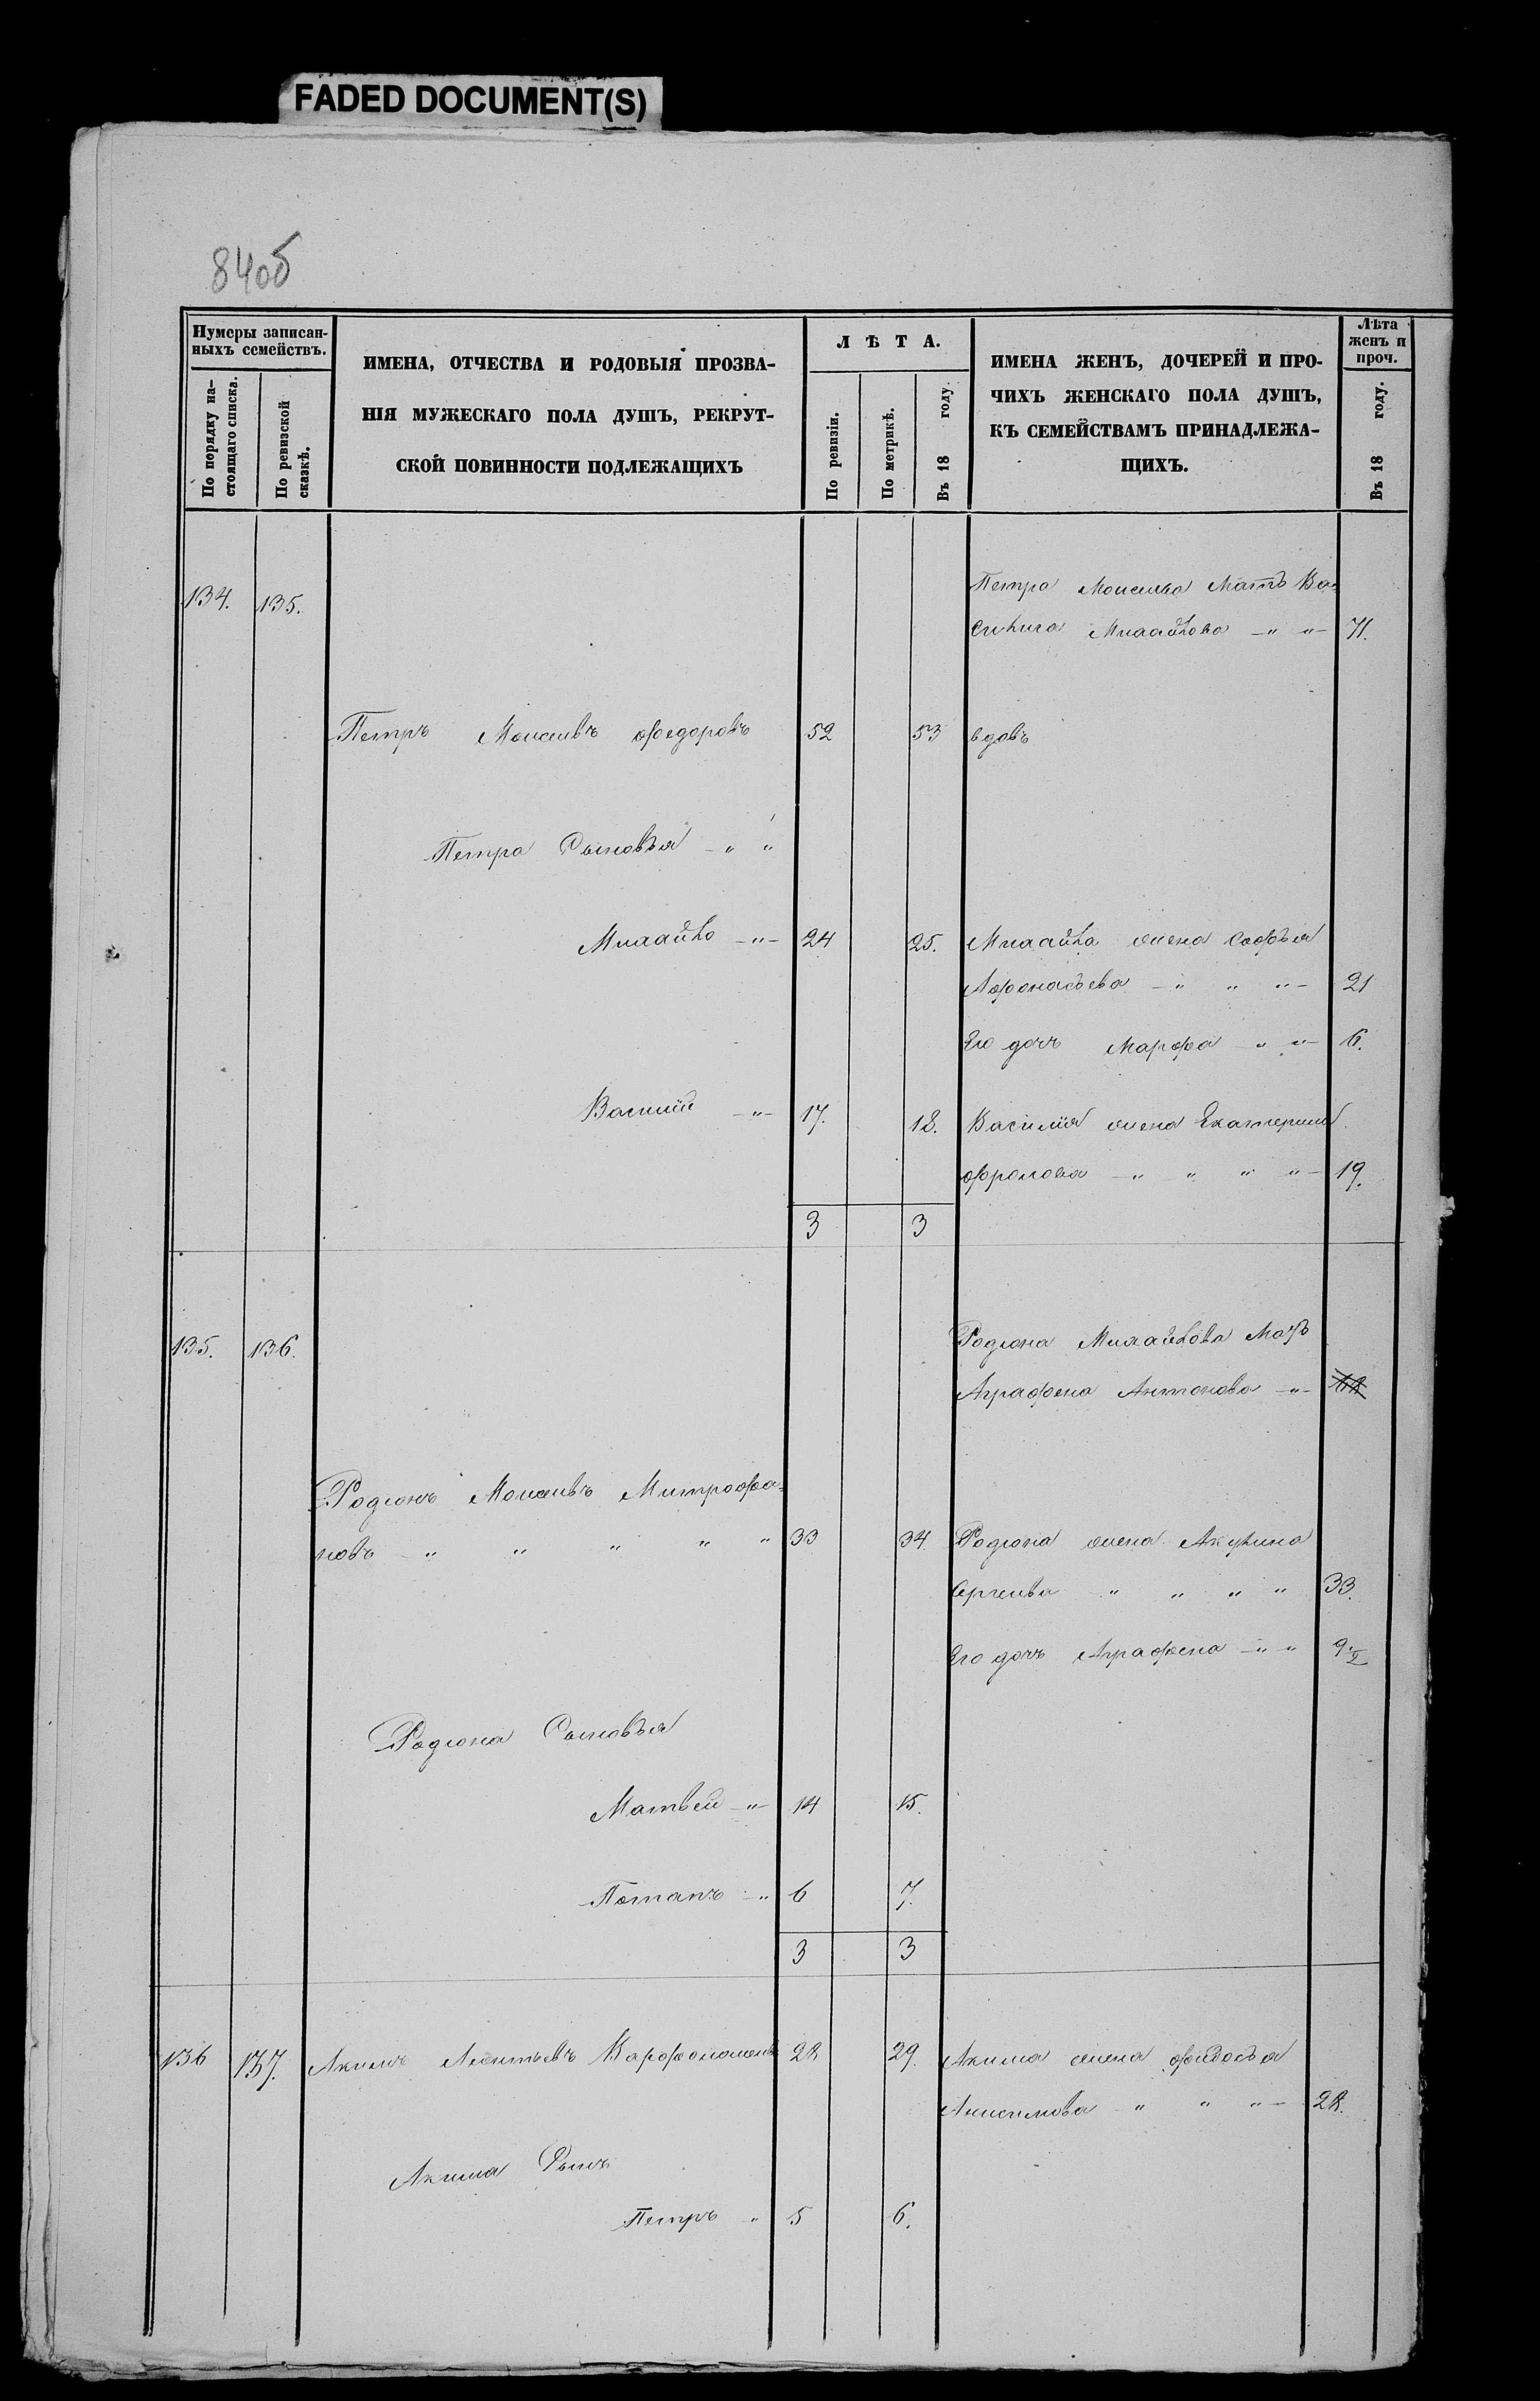 FADED DOCUMENT(S)
84об
Нумеры записан-
ныхъ семействъ.
По порядку на-
стоящаго списка.
По ревизской
сказкѣ.
ИМЕНА, ОТЧЕСТВА И РОДОВЫЯ ПРОЗВА-
НІЯ МУЖЕСКАГО ПОЛА ДУШЪ, РЕКРУТ-
СКОЙ ПОВИННОСТИ ПОДЛЕЖАЩИХЪ
ЛѢТА.
По ревизіи.
По метрикѣ.
Въ 18 году.
ИМЕНА ЖЕНЪ, ДОЧЕРЕЙ И ПРО-
ЧИХЪ ЖЕНСКАГО ПОЛА ДУШЪ,
КЪ СЕМЕЙСТВАМЪ ПРИНАДЛЕЖА-
ЩИХЪ.
Лѣта
женъ и
проч.
Въ 18 году.
134. 135. Петра Моисеива Мать Ва-
силиса Михайлова 71.
Петръ Моисеивъ Федоровъ 52 53 вдовъ
Петра Сыновья
Михайло 24 25. Михайла жена Софья
Афонасьева 21
Его дочь Марфа 6.
Василій 17. 18. Василія жена Екатерина
Фролова 19.
3 3
135. 136. Родіона Михайлова Мать
Аграфена Антонова
Родіонъ Моисеивъ Митрофа-
новъ 33 34. Родіона жена Акулина
Сергеива 33.
Его дочь Аграфена 9 1/2
Родіона Сыновья
Матвей 14 15.
Потапъ 6 7.
3 3
136 137. Акимъ Леонтьевъ 28 29. Акима жена Фидосья
Анисимова 28.
Акима Сынъ
Петръ 5 6.